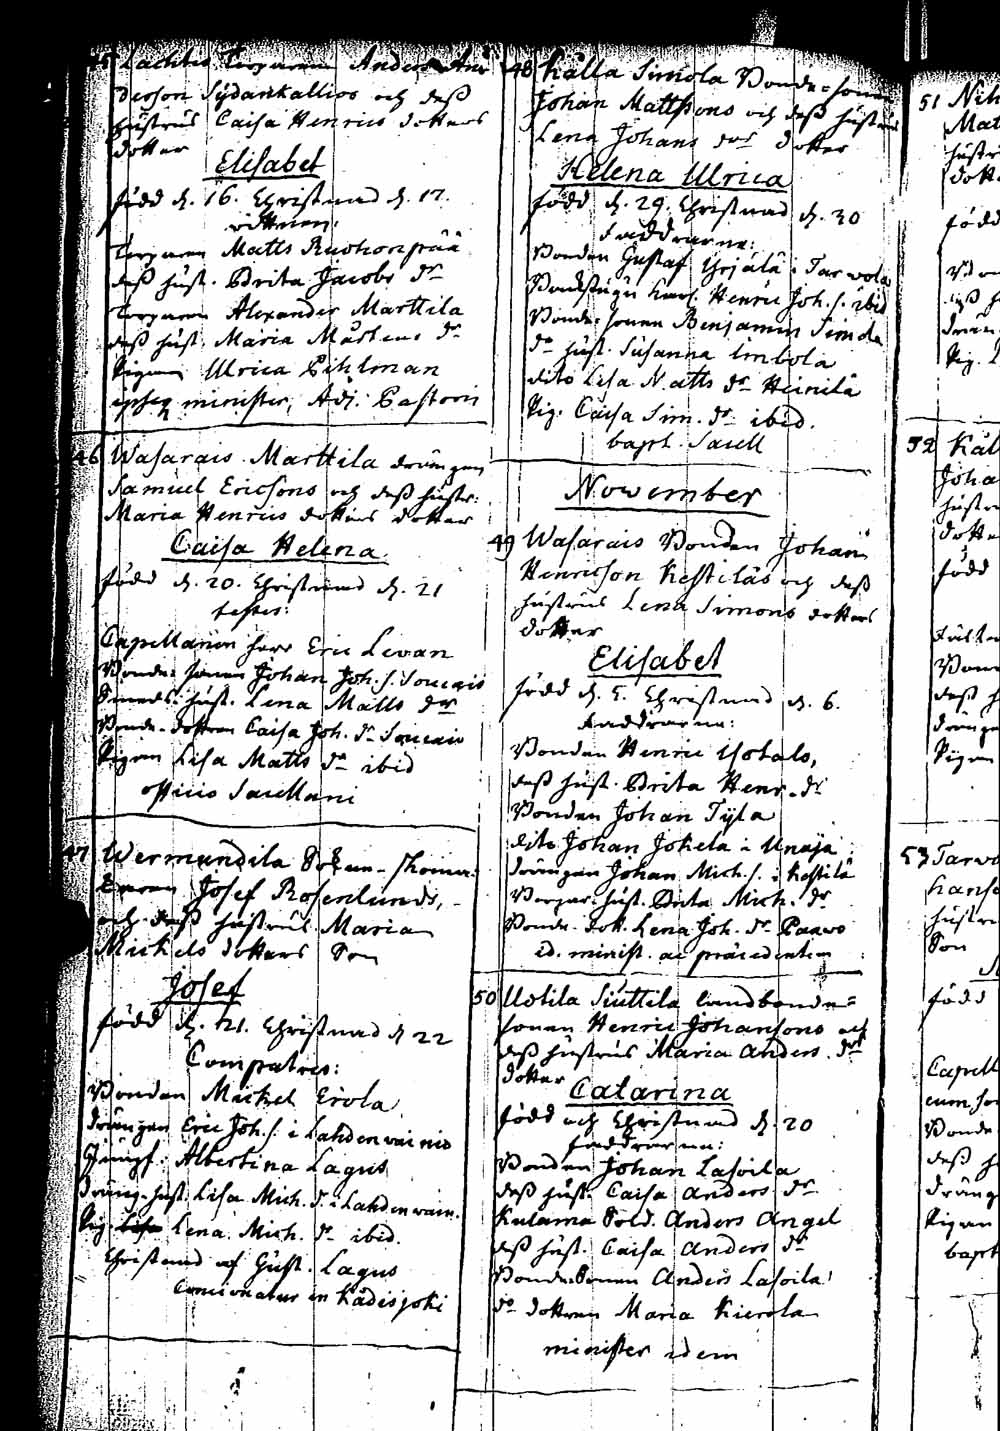 45 Lachtis Torparen Anders An-
dersson Sydänkallios och dess
hustrus Caisa Henrics dotters
dotter
Elisabet
född d. 16. Christnad d. 17.
vittnen:
Torparen Matts Ruohonpää
dess hust. Brita Jacobs dr
Torparen Alexander Marttila
dess hust. Maria Mårtens dr
Pigan Ulrica Pihlman
ipseq minister, Adj. Pastoris
46 Wasarais Marttila drängen
Samuel Ericsons och dess hustr:
Maria Henrics dotters dotter
Caisa Helena
född d. 20. Christnad d. 21
testes:
Capellanen herr Eric Levan
Bonde-sonen Johan Joh. s. Soucais
hust. Lena Matts dr
Bonde-dottren Caisa Joh. dr Soucais
Pigan Lisa Matts dr ibid
officio Sacellani
47 Wermundila
Josef Rosenlunds,
och dess hustrus Maria
Mickels dotters Son
Josef
född d. 21. Christnad d 22
Compatres:
Bonden Mickel Erola
drängen Eric Joh. s. i Lahdenvainio
Jungf. Albertina Lagus
dräng-hust. Lisa Mich. dr i Lahdenvain.
Pig. Lena Mich. dr ibid.
Christnad af Gust. Lagus
Concionator in Kådisjoki
48 Källa Simola Bonde-sonen
Johan Mattssons och dess hustrus
Lena Johans dors dotter
Helena Ulrica
född d. 29. Christnad d. 30
Faddrarne:
Bonden Gustaf Yrjälä i Tarvola
Henric Joh. s. ibid
Bonde-sonen Benjamin Simola
do hust. Susanna Imbola
dito Lisa Matts dr Heinilä
Pig. Caisa Sim. dr ibid.
bapt. Sacell
November
49 Wasarais Bonden Johan
Henricsson Kestiläs och dess
hustrus Lena Simons dotters
dotter
Elisabet
född d. 5. Christnad d. 6.
Faddrarne:
Bonden Henric Uotals,
dess hust. Brita Henr. dr
Bonden Johan Tyla
dito Johan Jokela i Unaja
drängen Johan Mich. s. i Kestilä
hust. Brita Mich. dr
Bonde-dott. Lena Joh. dr Paavo
id. minist. ac præcedentem
50 Uotila Siuttila landbonde-
sonen Henric Johansons och
dess hustrus Maria Anders drs
dotter
Catarina
född och Christnad d. 20
faddrarne:
Bonden Johan Lasoila
dess hust. Caisa Anders dr
Kulama Sold. Anders Angel
dess hust. Caisa Anders dr
Bonde-Sonen Anders Lasoila
do dottren Maria Kierola
minister idem
51
Mat
hustr
dott
född
52 Käl
Joha
hustr
dott
född
Bond
dess h
dräng
Pigan
53 Tarvo
hustr
Son
född
Capell
Bonde
dess h
dräng
Pigan
bapt